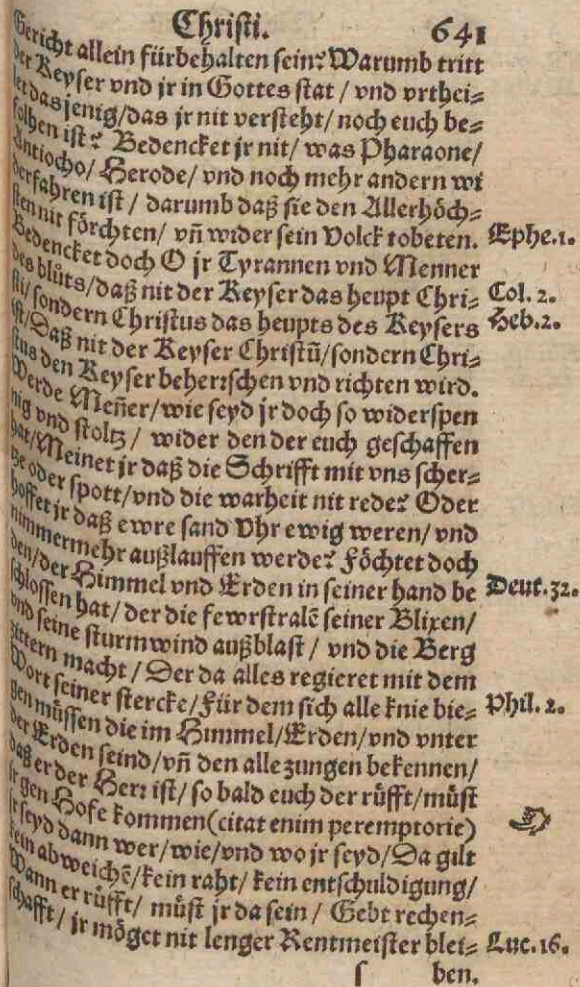 Christi. 641
Gericht allein fürbehalten sein? Warumb tritt
der Keyser vnd jr in Gottes stat / vnd vrthei⸗
let das jenig/das jr nit versteht/ noch euch be⸗
folhen ist? Bedencket jr nit/ was Pharaone/
Antiocho/ Herode/ vnd noch mehr andern wi
derfahren ist / darumb daß sie den Allerhöch⸗
sten nit förchten/ vñ wider sein Volck tobeten. Ephe.1.
Bedencket doch O jr Tyrannen vnd Menner
des blůts/daß nit der Keyser das heupt Chri⸗ Col. 2.
sti/sondern Christus das heupts des Keysers Heb.2.
ist/Daß nit der Keyser Christũ/sondern Chri⸗
stus den Keyser beherrschen vnd richten wird.
Werde Meñer/wie seyd jr doch so widerspen
nig vnd stoltz / wider den der euch geschaffen
hat/Meinet jr daß die Schrifft mit vns scher⸗
tze oder spott/vnd die warheit nit rede? Oder
hoffet jr daß ewre sand Vhr ewig weren/ vnd
nimmermehr außlauffen werde? Föchtet doch
den/der Himmel vnd Erden in seiner hand be Deut.32.
schlossen hat/ der die fewrstralẽ seiner Blixen/
vnd seine sturmwind außblast / vnd die Berg
zittern macht / Der da alles regieret mit dem
Wort seiner stercke/Für dem sich alle knie bie⸗ Phil. 2.
gen müssen die im Himmel/Erden/vnd vnter
der Erden seind/vñ den alle zungen bekennen/
daß er der Herr ist/ so bald euch der růfft/můst
jr gen Hofe kommen(citat enim peremptorie)
jr seyd dann wer/wie/vnd wo jr seyd/Da gilt
kein abweichẽ/kein raht/ kein entschuldigung/
Wann er růfft/ můst jr da sein / Gebt rechen⸗
schafft/ jr möget nit lenger Rentmeister blei⸗ Luc.16.
s ben.